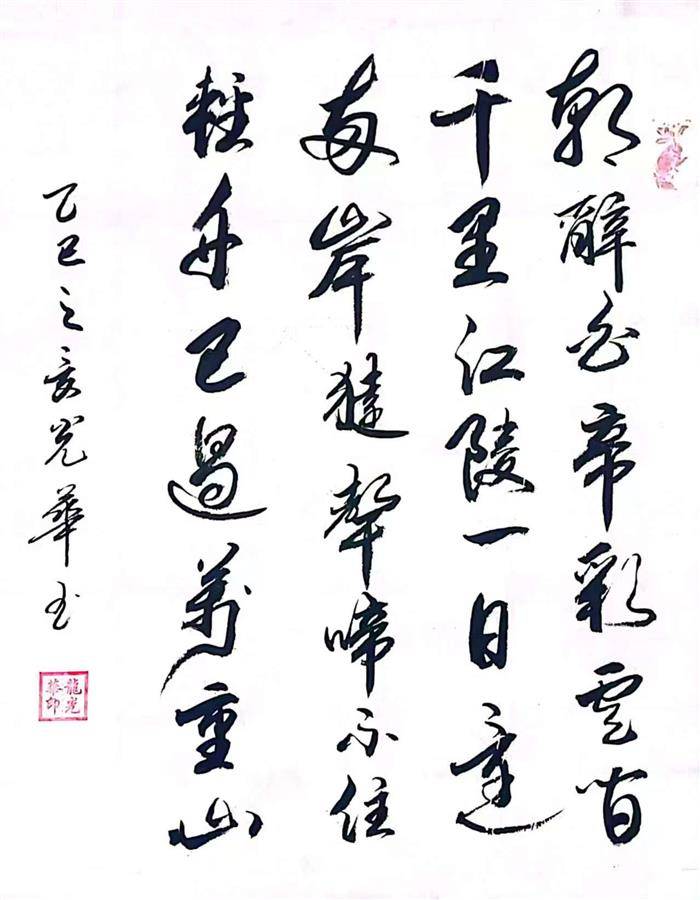 朝辭白帝彩雲間
千里江陵一日還
兩岸猿聲啼不住
輕舟已過萬重山
乙巳之夏光華書
龍光華印